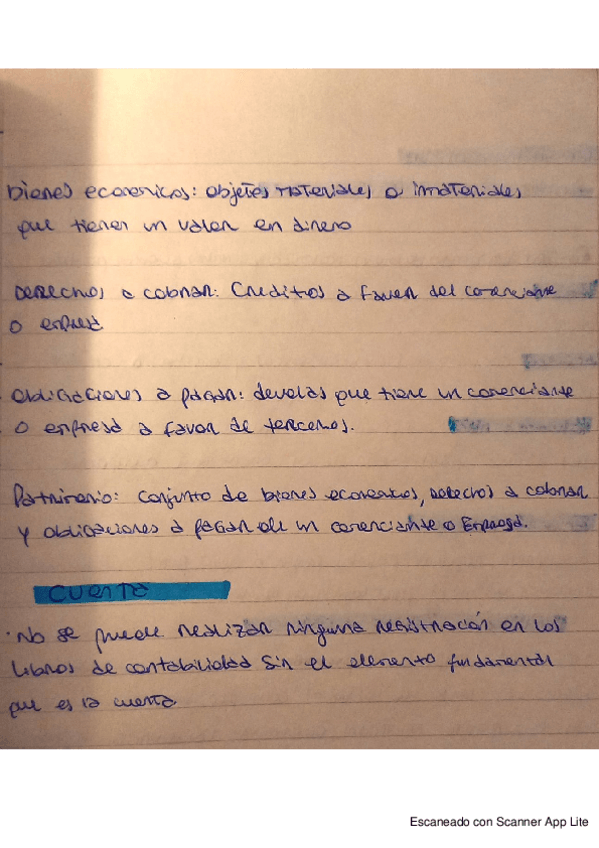 bienes economicos: objetos materiales o inmateriales
que tienen un valor en dinero
Derechos a cobrar: Creditos a favor del comerciante
o empresa
Obligaciones a pagar: deudas que tiene un comerciante
o empresa a favor de terceros.
Patrimonio: Conjunto de bienes economicos, derechos a cobrar
y obligaciones a pagar de un comerciante o Empresa.
CUENTA
· No se puede realizar ninguna registración en los
libros de contabilidad sin el elemento fundamental
que es la cuenta
Escaneado con Scanner App Lite